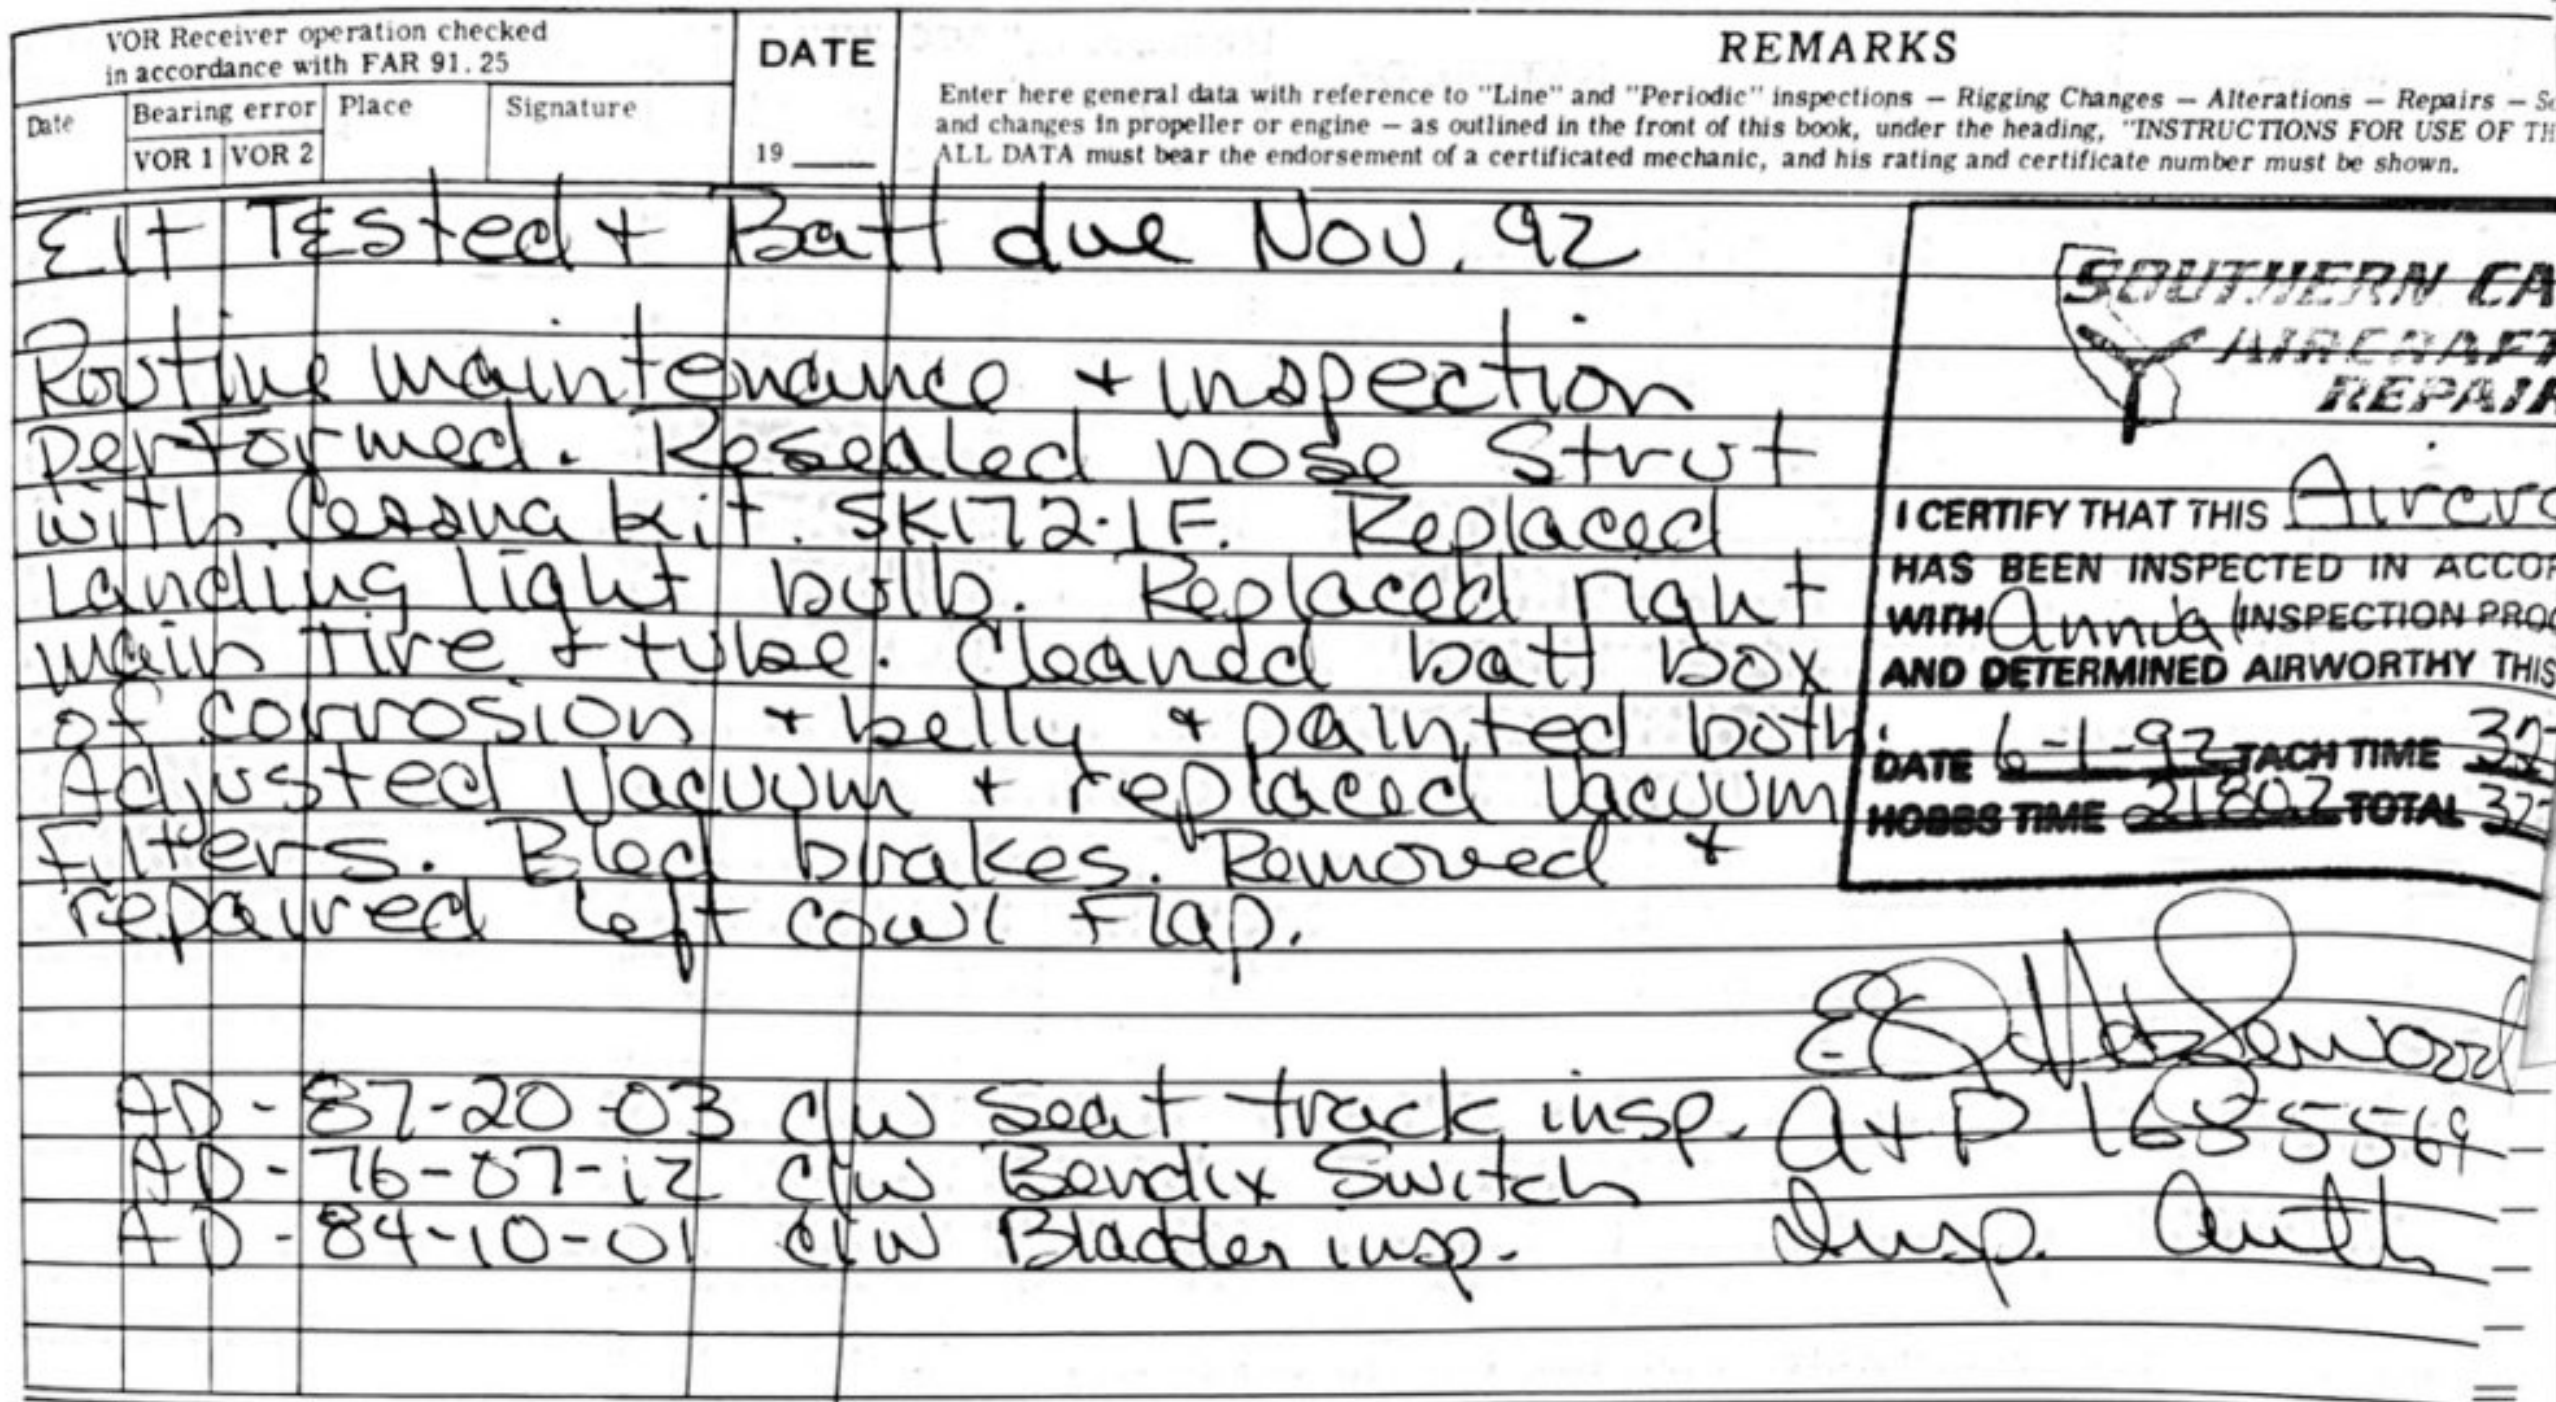 VOR Receiver operation checked
in accordance with FAR 91.25
Date
Bearing error
VOR 1 VOR 2
Place
Signature
DATE
19
REMARKS
Enter here general data with reference to "Line" and "Periodic" inspections — Rigging Changes — Alterations — Repairs —
and changes in propeller or engine — as outlined in the front of this book, under the heading, "INSTRUCTIONS FOR USE OF
ALL DATA must bear the endorsement of a certificated mechanic, and his rating and certificate number must be shown.
Elt TEsted + Batt due Nov. 92
Routine maintenance + inspection
performed. Resealed nose Strut
with Cessna kit. SK172-1F. Replaced
Landing light bulb. Replaced right
main tire + tube. Cleaned batt box
of corrosion + belly + painted both.
Adjusted Vacuum + replaced Vacuum
Filters. Bled brakes. Removed +
repaired left cowl Flap.
SOUTHERN CA
AIRCRAFT
REPAIR
I CERTIFY THAT THIS Aircra
HAS BEEN INSPECTED IN ACCOR
WITH Annual INSPECTION PROC
AND DETERMINED AIRWORTHY THIS
DATE 6-1-92 TACH TIME 32
HOBBS TIME TOTAL
AD - 87-20-03 c/w Seat track insp. A+P 1685569
AD - 76-07-12 c/w Bendix Switch
AD - 84-10-01 c/w Bladder insp. Insp. Auth